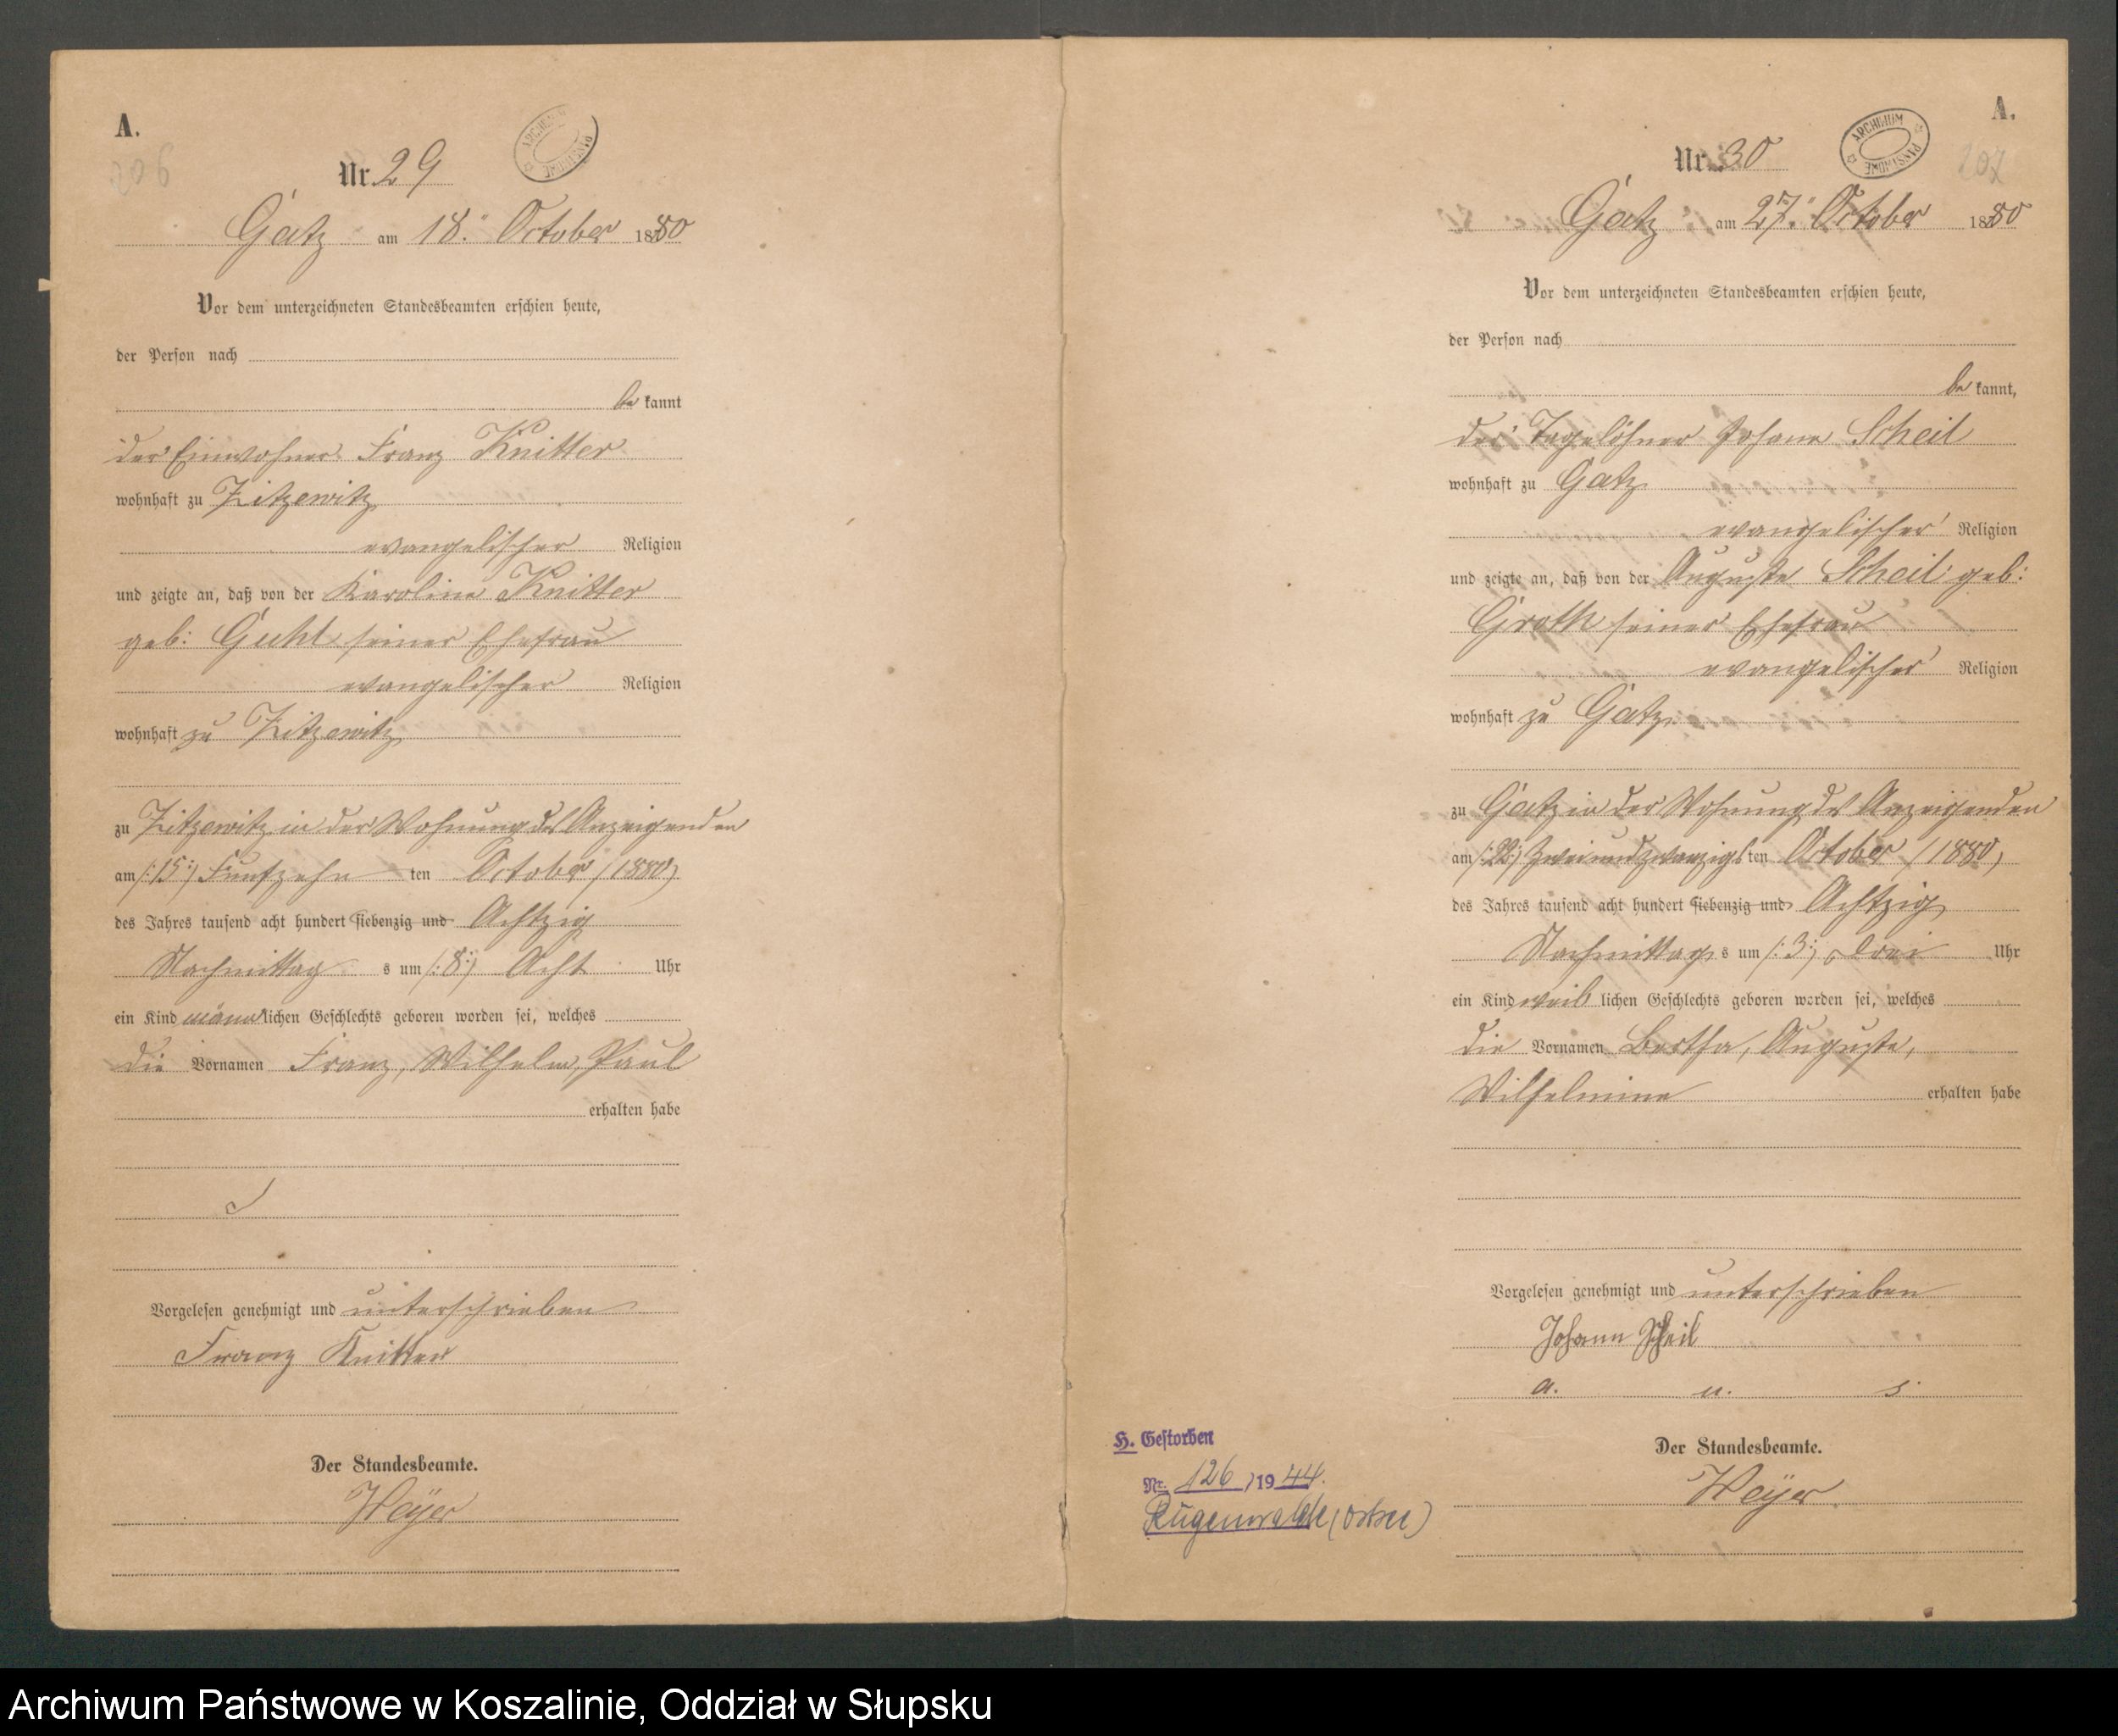 A.
206
Nr. 29
ARCHIWUM PAŃSTWOWE
Gatz am 18. October 1880
Vor dem unterzeichneten Standesbeamten erschien heute,
der Person nach
be kannt
der Einwohner Franz Knitter
wohnhaft zu Zitzewitz
evangelischer Religion
und zeigte an, daß von der Karoline Knitter
geb: Guhl seiner Ehefrau
evangelischer Religion
wohnhaft zu Zitzewitz
zu Zitzewitz in der Wohnung des Anzeigenden
am /:15:/ Fünfzehn ten October /1880/
des Jahres tausend acht hundert siebenzig und Achtzig
Nachmittag s um /:8:/ Acht Uhr
ein Kind männlichen Geschlechts geboren worden sei, welches
die Vornamen Franz, Wilhelm, Paul
erhalten habe
Vorgelesen genehmigt und unterschrieben
Franz Knitter
Der Standesbeamte.
Heÿer
A.
207
Nr. 30
ARCHIWUM PAŃSTWOWE
Gatz am 27. October 1880
Vor dem unterzeichneten Standesbeamten erschien heute,
der Person nach
be kannt,
der Tagelöhner Johann Scheil
wohnhaft zu Gatz
evangelischer Religion
und zeigte an, daß von der Auguste Scheil geb:
Groth seiner Ehefrau
evangelischer Religion
wohnhaft zu Gatz
zu Gatz in der Wohnung des Anzeigenden
am /:22:/ Zweiundzwanzigsten October /1880/
des Jahres tausend acht hundert siebenzig und Achtzig
Nachmittag s um /:3:/ Drei Uhr
ein Kind weiblichen Geschlechts geboren worden sei, welches
die Vornamen Bertha, Auguste,
Wilhelmine erhalten habe
Vorgelesen genehmigt und unterschrieben
Johann Scheil
a. u. s.
Der Standesbeamte.
Heÿer
H. Gestorben
Nr. 126 /1944.
Rügenwalde (Ostsee)
Archiwum Państwowe w Koszalinie, Oddział w Słupsku